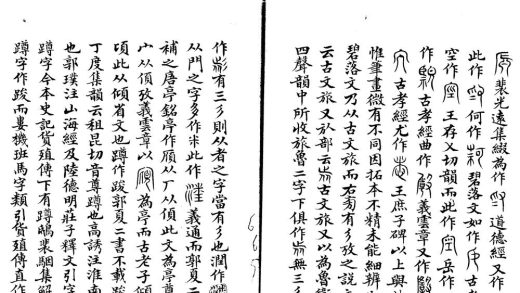 裴光遠集綴為作 道德經又作
此作 何作 碧落文如作 古
空作 王存乂切韻而此作 岳作
作 古孝經曲作 義雲章又作
古孝經尤作 王庶子碑以上與
惟筆畫微有不同因拓本不精未能細辨
碧落文乃从古文旅而右旁有彡攷之說
云古文旅又於 部云古文旅又以為魯衛
四聲韻中所收旅魯二字下俱作 無三彡
665
作 有三彡則从者之字當有彡也潤作
从門之字多作 此作 義通而郭夏二
補之唐亭銘亭作 从厂从頃此文為亭
广从頃攷義雲章以 為亭而古老子傾
頃此从傾省文也蹲作踆郭夏二書不載
丁度集韻云祖昆切音尊蹲也高誘注淮南
也郭璞注山海經及陸德明莊子釋文引字
蹲字今本史記貨殖傳下有蹲鴟裴駰集解
蹲字作踆而婁機班馬字類引貨殖傳直作